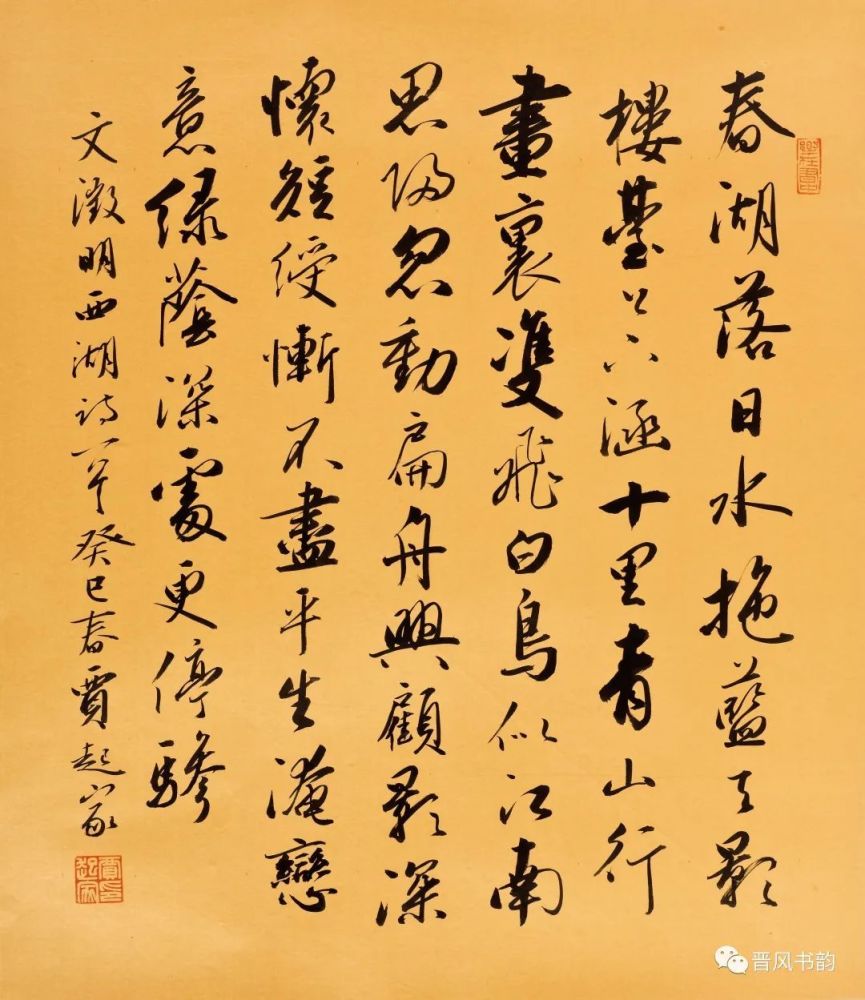 春湖落日水拖藍天影
樓臺上下涵十里青山行
畫裏雙飛白鳥似江南
思歸忽動扁舟興顧影深
懷短綬慚不盡平生淹戀
意绿蔭深處更停驂
文徵明西湖诗一首癸巳春賈起家
晋风书韵